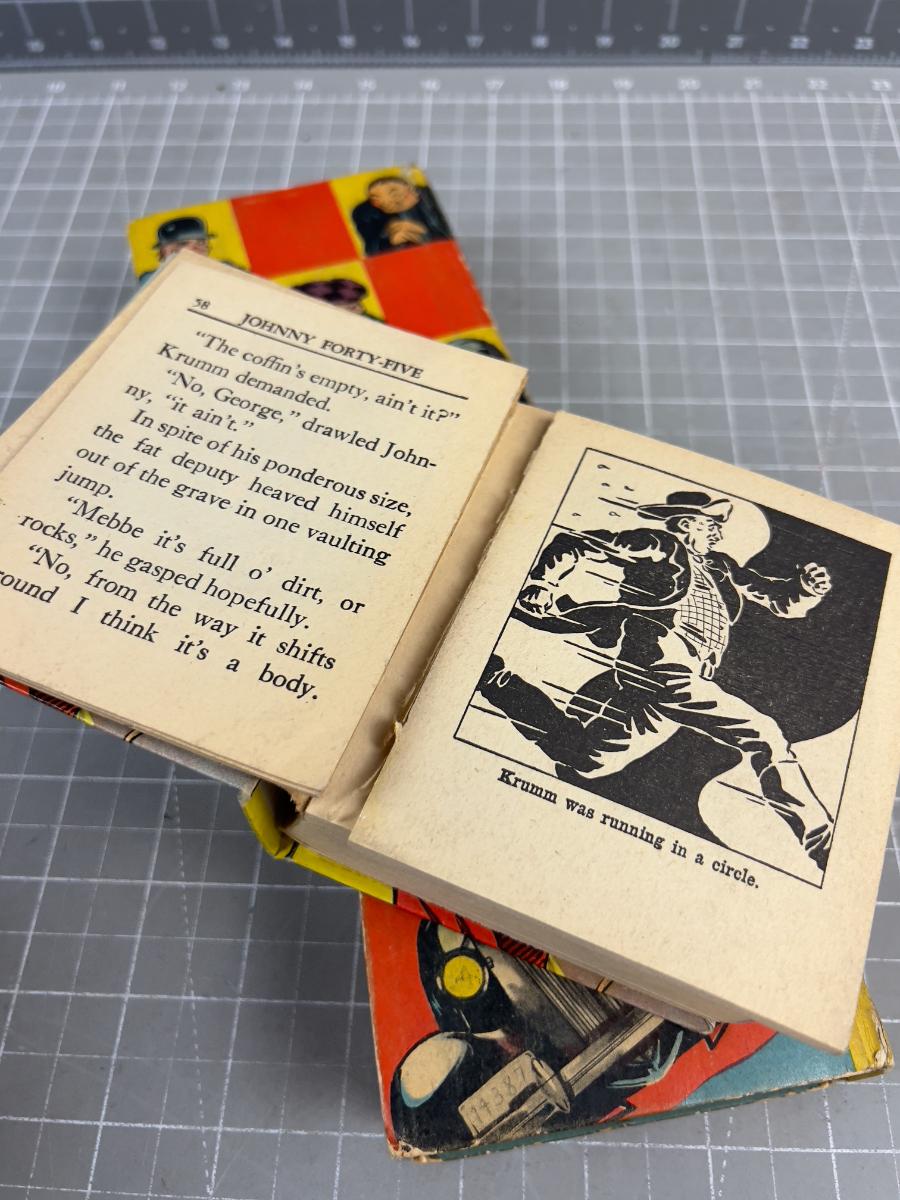 10 11 12 13 14 15 16 17 18 19 20 21 22 23
10 11 12 13 14 15 16 17 18 19 20 21 22 23
58 JOHNNY FORTY-FIVE
"The coffin's empty, ain't it?"
Krumm demanded.
"No, George," drawled John-
ny, "it ain't."
In spite of his ponderous size,
the fat deputy heaved himself
out of the grave in one vaulting
jump.
"Mebbe it's full o' dirt, or
rocks," he gasped hopefully.
"No, from the way it shifts
round I think it's a body.
Krumm was running in a circle.
14387